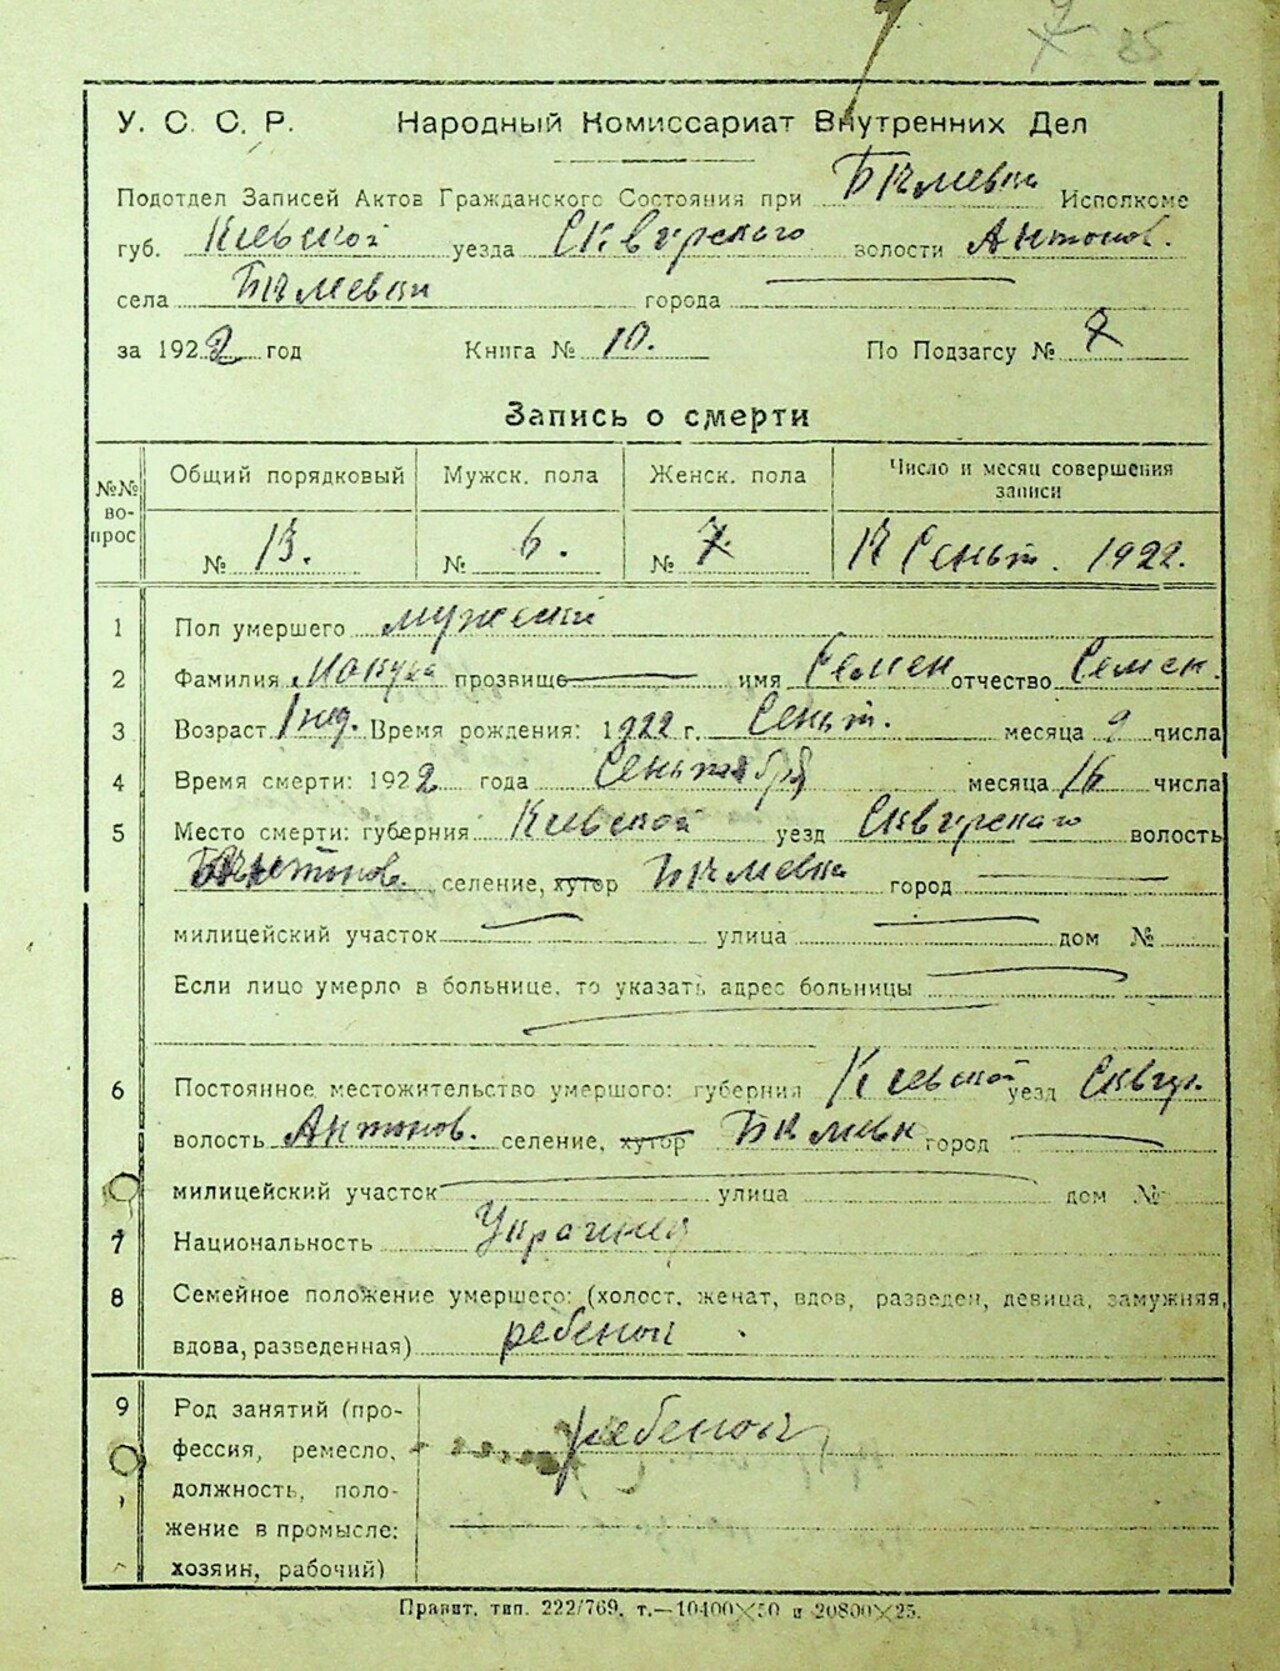 У. С. С. Р. Народный Комиссариат Внутренних Дел
Подотдел Записей Актов Гражданского Состояния при Исполкоме
губ. Киевской уезда Сквирского волости Антонов.
села города
за 1922 год Книга № 10. По Подзагсу № 7
Запись о смерти
№№ вопрос Общий порядковый Мужск. пола Женск. пола Число и месяц совершения записи
№ 13. № 6. № 7. 17 Сеньт. 1922.
1 Пол умершего мужской
2 Фамилия прозвище имя Семен отчество Семен.
3 Возраст 1 нед. Время рождения: 1922 г. Сеньт. месяца 9 числа
4 Время смерти: 1922 года Сеньтября месяца 16 числа
5 Место смерти: губерния Киевской уезд Сквирского волость
Антонов. селение, хутор город
милицейский участок улица дом №
Если лицо умерло в больнице, то указать адрес больницы
6 Постоянное местожительство умершого: губерния Киевской уезд Сквир.
волость Антонов. селение, хутор город
милицейский участок улица дом №
7 Национальность
8 Семейное положение умершего: (холост, женат, вдов, разведен, девица, замужняя,
вдова, разведенная) ребенок
9 Род занятий (про-
фессия, ремесло, ребенок
должность, поло-
жение в промысле:
хозяин, рабочий)
Правит. тип. 222/769. т.—10400×50 и 20800×25.